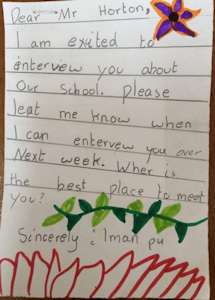 Dear Mr Horton,
I am exited to
enterview you about
Our school. Please
leat me know when
I can entervew you over
Next week. Wher is
the best place to meet
you?
Sincerely : Iman pu